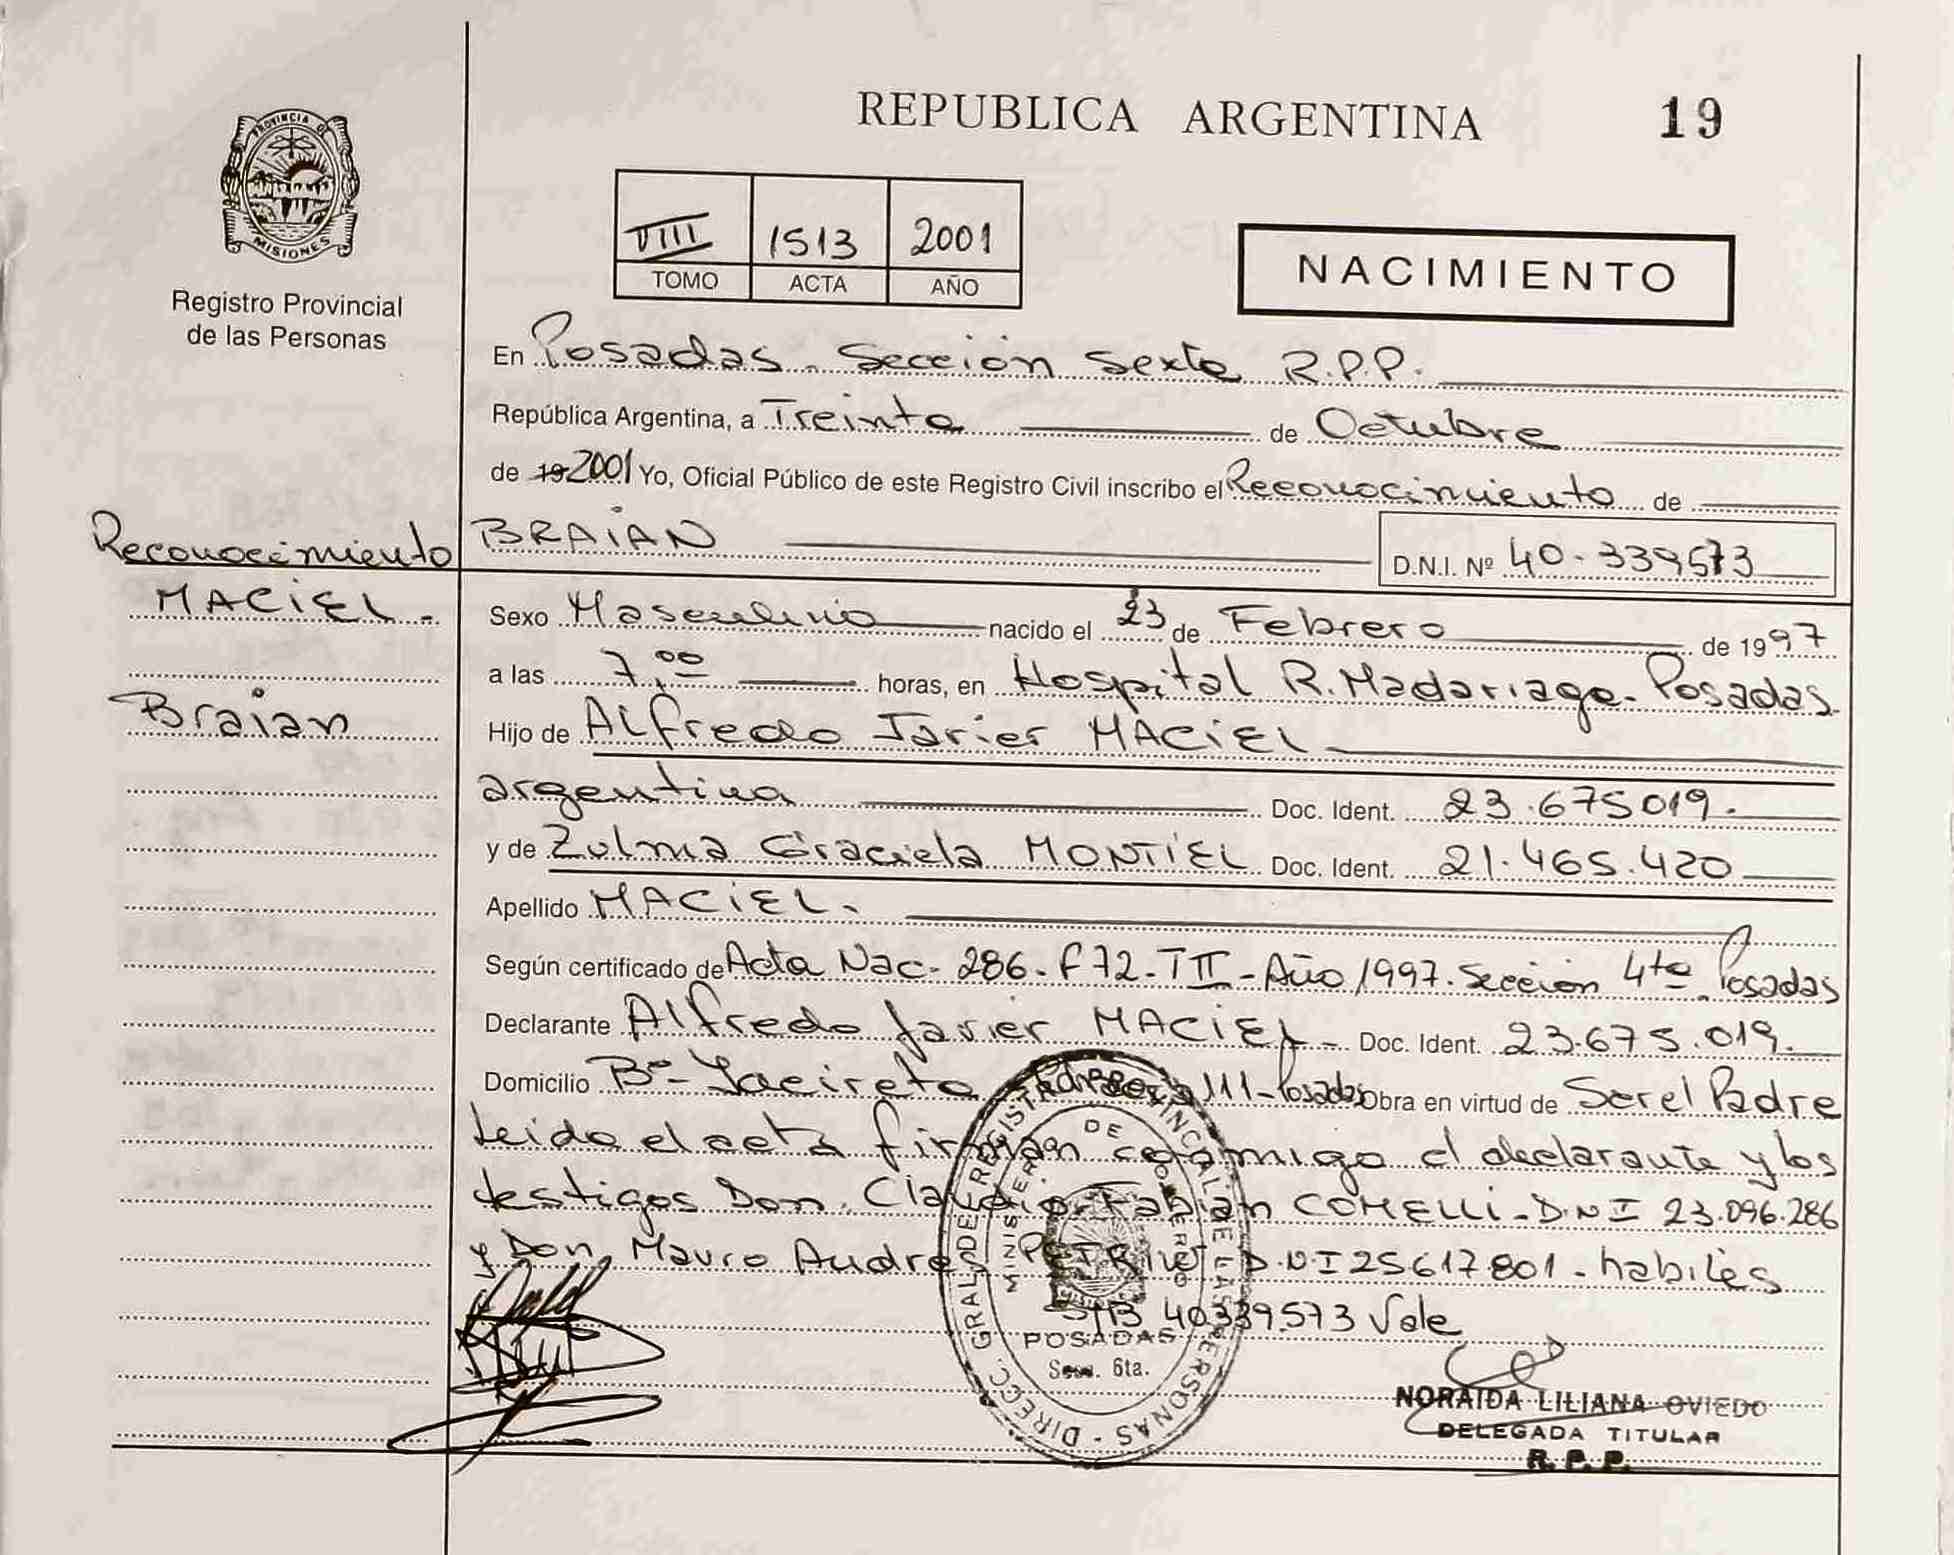 REPUBLICA ARGENTINA
19
PROVINCIA DE
MISIONES
Registro Provincial
de las Personas
VIII 1513 2001
TOMO ACTA AÑO
NACIMIENTO
En Posadas. Sección Sexta R.P.P.
República Argentina, a Treinta de Octubre
de 19 2001 Yo, Oficial Público de este Registro Civil inscribo el Reconocimiento de
BRAIAN D.N.I. Nº 40.339573
Reconocimiento
MACIEL.
Braian
Sexo Masculino nacido el 23 de Febrero de 1997
a las 7,00 horas, en Hospital R. Madariaga. Posadas.
Hijo de Alfredo Javier MACIEL
argentina Doc. Ident. 23.675019.
y de Zulma Graciela MONTIEL Doc. Ident. 21.465.420
Apellido MACIEL.
Según certificado de Acta Nac. 286. F72. TII - Año 1997. Sección 4ta Posadas
Declarante Alfredo Javier MACIEL Doc. Ident. 23.675.019.
Domicilio Bº Yacireta 111 - Posadas Obra en virtud de Ser el Padre
Leida el acta firman conmigo el declarante y los
testigos Don. Claudio Fabián COMELLI - D.N.I 23.096.286
y Don Mauro Andres D.N.I 25617801 - habiles
40339573 Vale
DIRECC. GRAL. DE REGISTRO PROVINCIAL DE LAS PERSONAS
MINISTER. DE GOBIERNO
POSADAS
Secc. 6ta.
NORAIDA LILIANA OVIEDO
DELEGADA TITULAR
R.P.P.